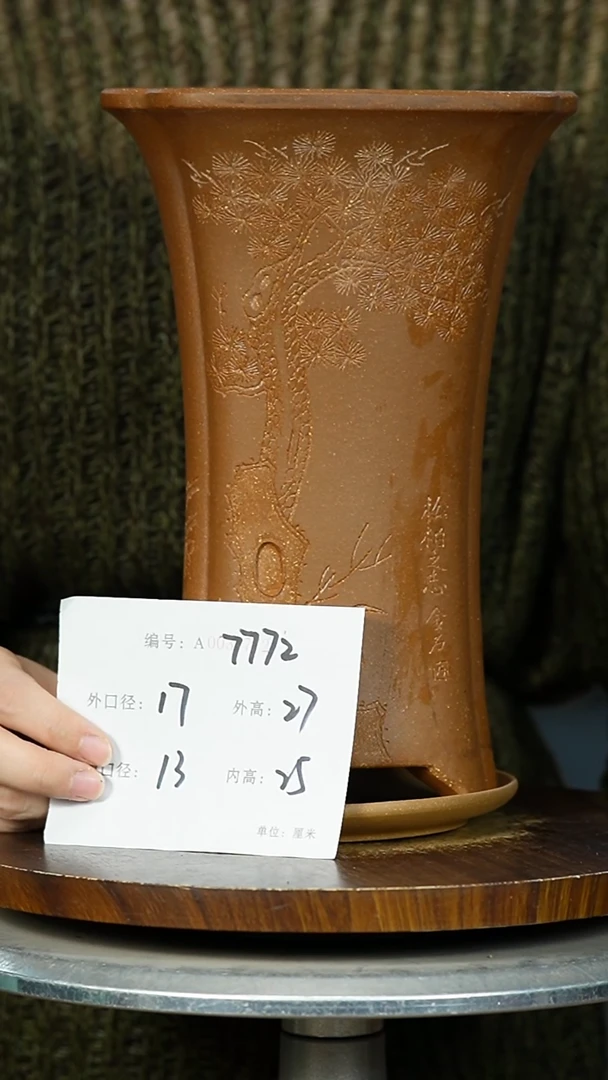 松柏之志
编号: A 7772
外口径: 17 外高: 27
口径: 13 内高: 25
单位: 厘米